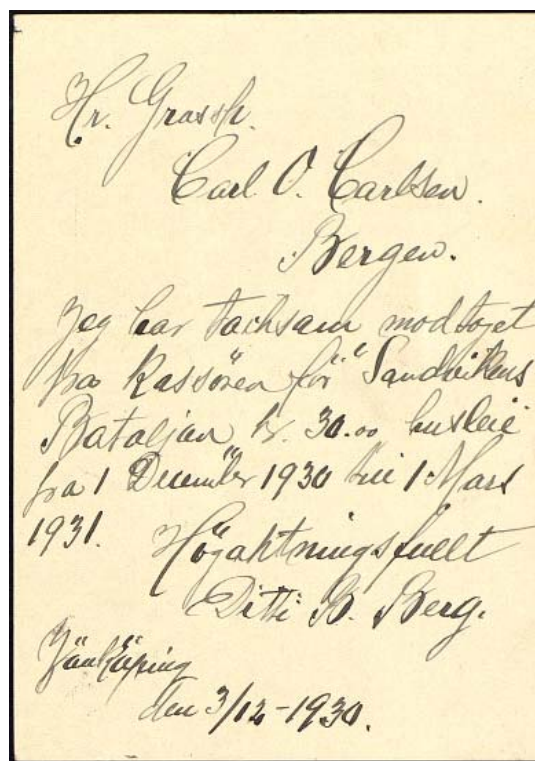 Hr. Grossh.
Carl O. Carlsen.
Bergen.
Jeg har tacksam modtaget
fra Kassören för "Sandvikens
Bataljan kr. 30.00 husleie
fra 1 December 1930 till 1 Mars
1931.
Högaktningsfullt
Ditti B. Berg.
Jönköping
den 3/12-1930.